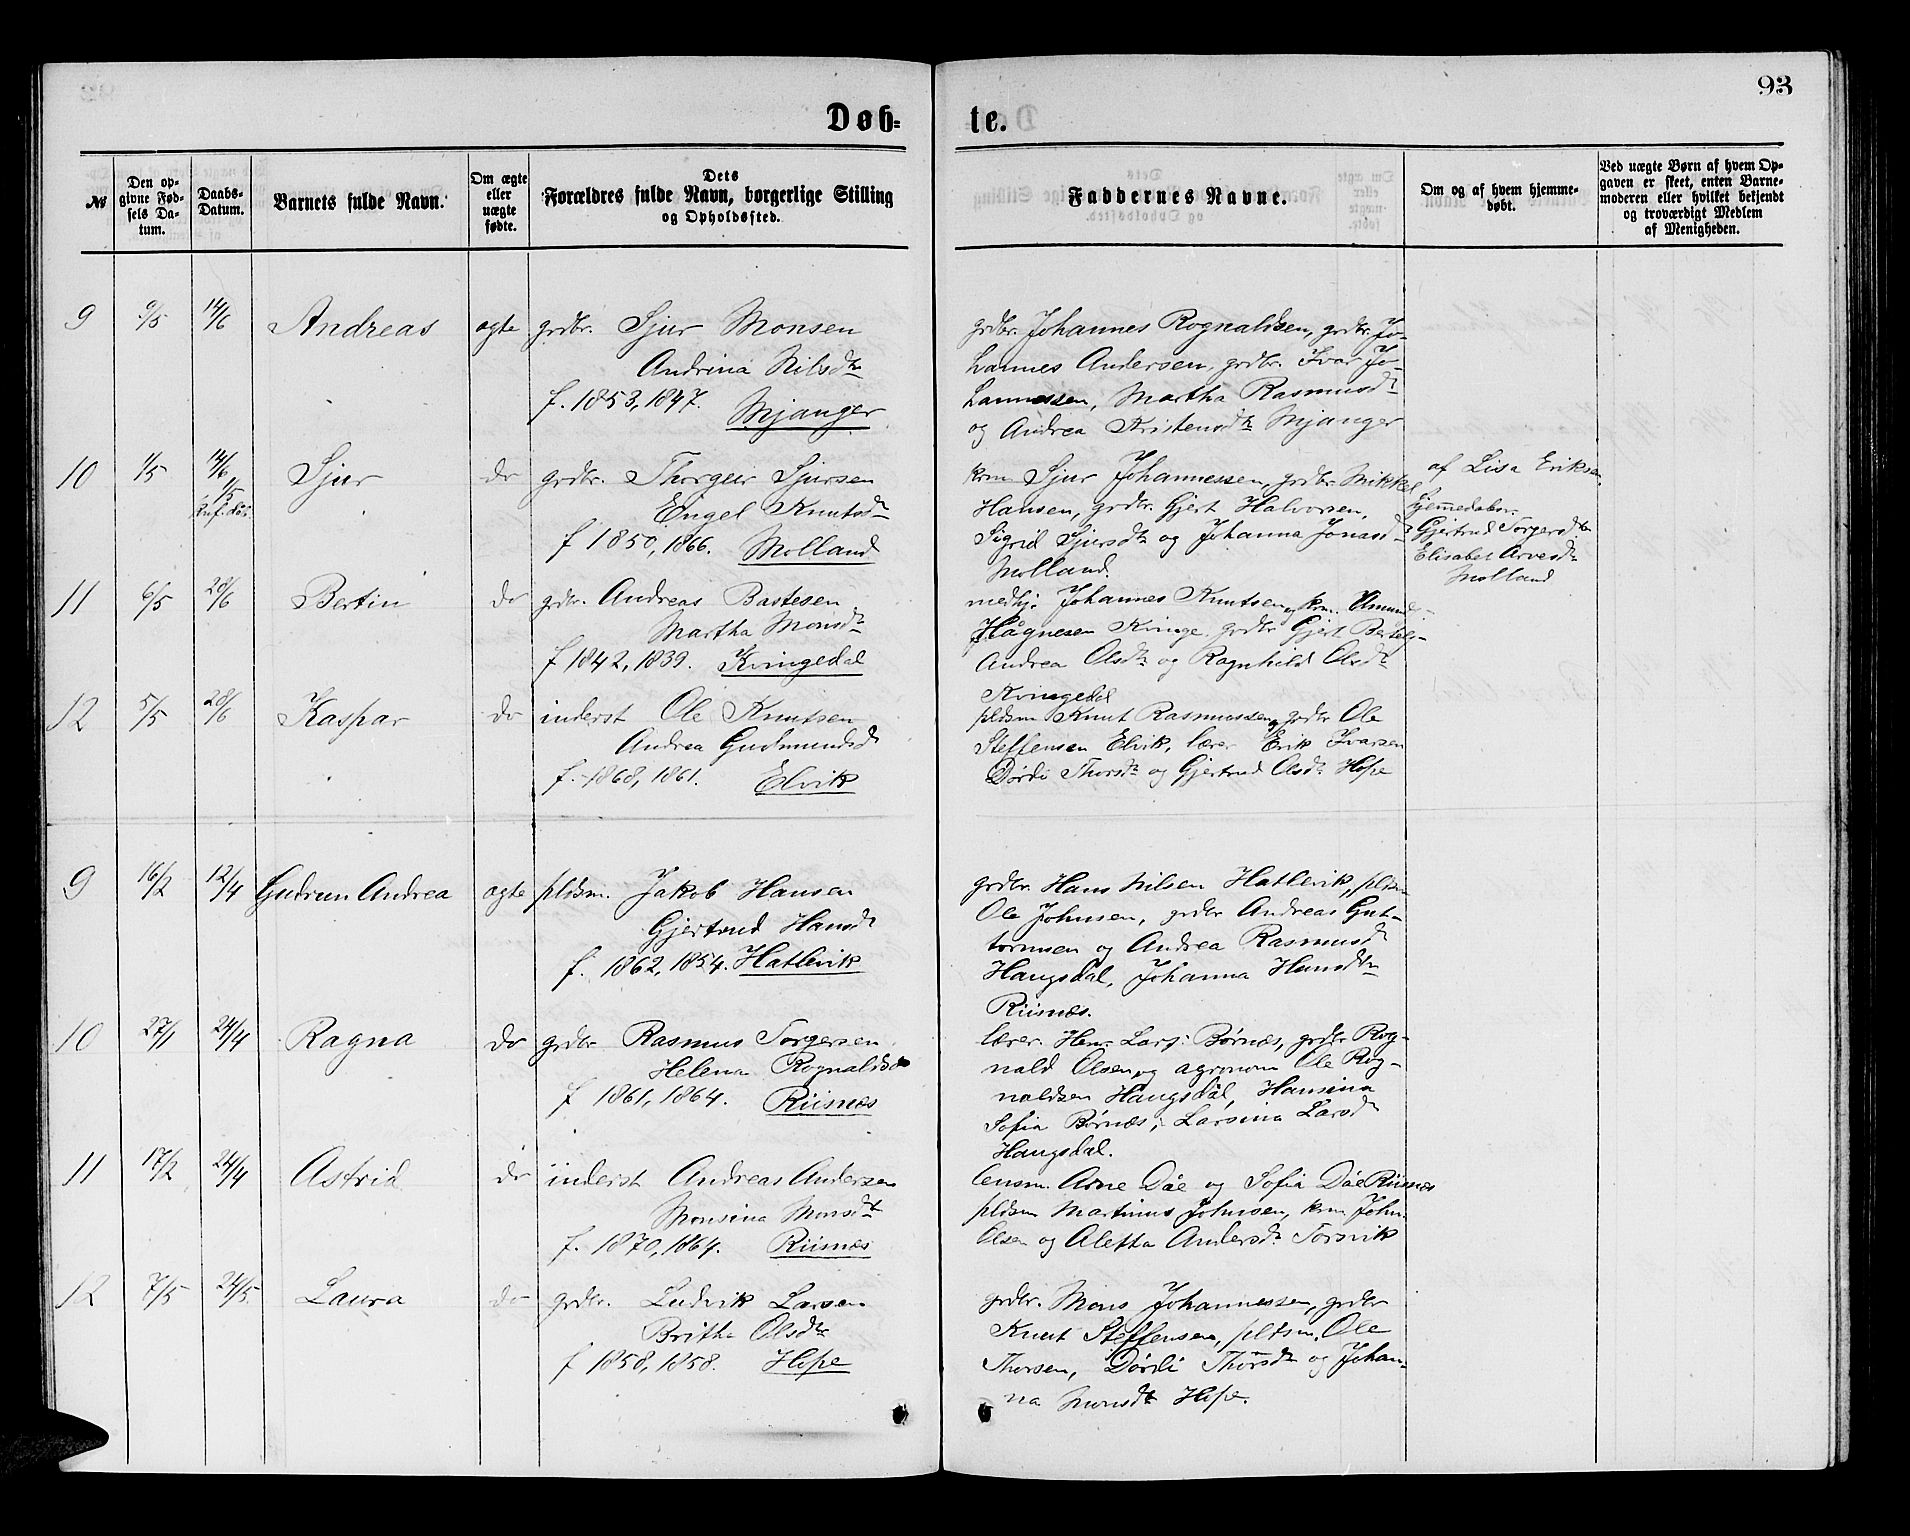 93
Døb-
te.
№
Den op-
givne Fød-
sels Da-
tum.
Daabs-
Datum.
Barnets fulde Navn.
Om ægte
eller
uægte
fødte.
Dets
Forældres fulde Navn, borgerlige Stilling
og Opholdssted.
Faddernes Navne.
Om og af hvem hjemme-
døbt.
Ved uægte Børn af hvem Op-
gaven er skeet, enten Barne-
moderen eller hvilket bekjendt
og troværdigt Medlem
af Menigheden.
9 9/5 14/6 Andreas ægte grdbr. Sjur Monsen
Andrina Nilsdtr
f. 1853, 1847. Mjanger
grdbr. Johannes Rognaldsen, grdbr. Jo-
hannes Andersen, grdbr. Ivar Jo-
hannessen, Martha Rasmusdtr
og Andrea Kristensdtr Mjanger
10 1/5 14/6 Sjur do grdbr. Thorgeir Sjursen
1/5
Engel Knutsdtr
f 1850, 1866. Molland
krm Sjur Johannessen, grdbr. Mikkel
Hansen, grdbr. Gjert Halvorsen,
Sigrid Sjursdtr og Johanna Jonasdtr
Molland.
af Lisa Eriksen,
hjemmedøbt.
Gjertrud Torgersdtr
Elisabet Arnesdtr
Molland
11 6/5 28/6 Bertin do grdbr. Andreas Bastesen
Martha Monsdtr
f 1842, 1839. Kvingedal
medhj. Johannes Knutsen, og krm. Amund
Hågnesen Kvinge, grdbr. Gjert Bertels-
Andrea Olsdtr og Ragnhild Olsdtr
Kvingedal
12 5/5 28/6 Kaspar do inderst Ole Knutsen
Andrea Gudmundsdtr
f. 1868, 1861. Elvik
pldsm Knut Rasmussen og grdbr Ole
Steffensen Elvik, lærer Erik Ivarsen
Dordi Thorsdtr og Gjertrud Olsdtr Hope
9 16/2 12/4 Gudrun Andrea ægte pldsm. Jakob Hansen
Gjertrud Hansdtr
f. 1862, 1854. Hatlevik
grdbr. Hans Nilsen Hatlevik, pldsm
Ole Johnsen, grdbr Andreas Gut-
tormsen og Andrea Rasmusdtr
Haugsdal, Johanna Hansdtr
Riisnæs.
10 27/1 24/4 Ragna do grdbr Rasmus Torgersen
Helena Rognaldsdtr
f 1861, 1864. Riisnæs
lærer Hen. Lars. Børnæs, grdbr Rog-
nald Olsen og agronom Ole Rog-
naldsen Haugsdal, Hansina
Sofia Børnæs, Larsina Larsdtr
Haugsdal.
11 17/2 24/4 Astrid do inderst Andreas Andersen
Monsina Monsdtr
f. 1870, 1864. Riisnæs
lensm. Arne Dåe og Sofia Dåe Riisnæs
pldsm Martinus Johnsen, krm. John
Olsen og Aletha Andersdtr Torsvik
12 7/5 24/5. Laura do grdbr. Ludvik Larsen
Britha Olsdtr
f 1858, 1858. Hope
grdbr. Mons Johannessen, grdbr
Knut Steffensen, pldsm. Ole
Thorsen, Dordi Thorsdtr og Johan-
na Monsdtr Hope.